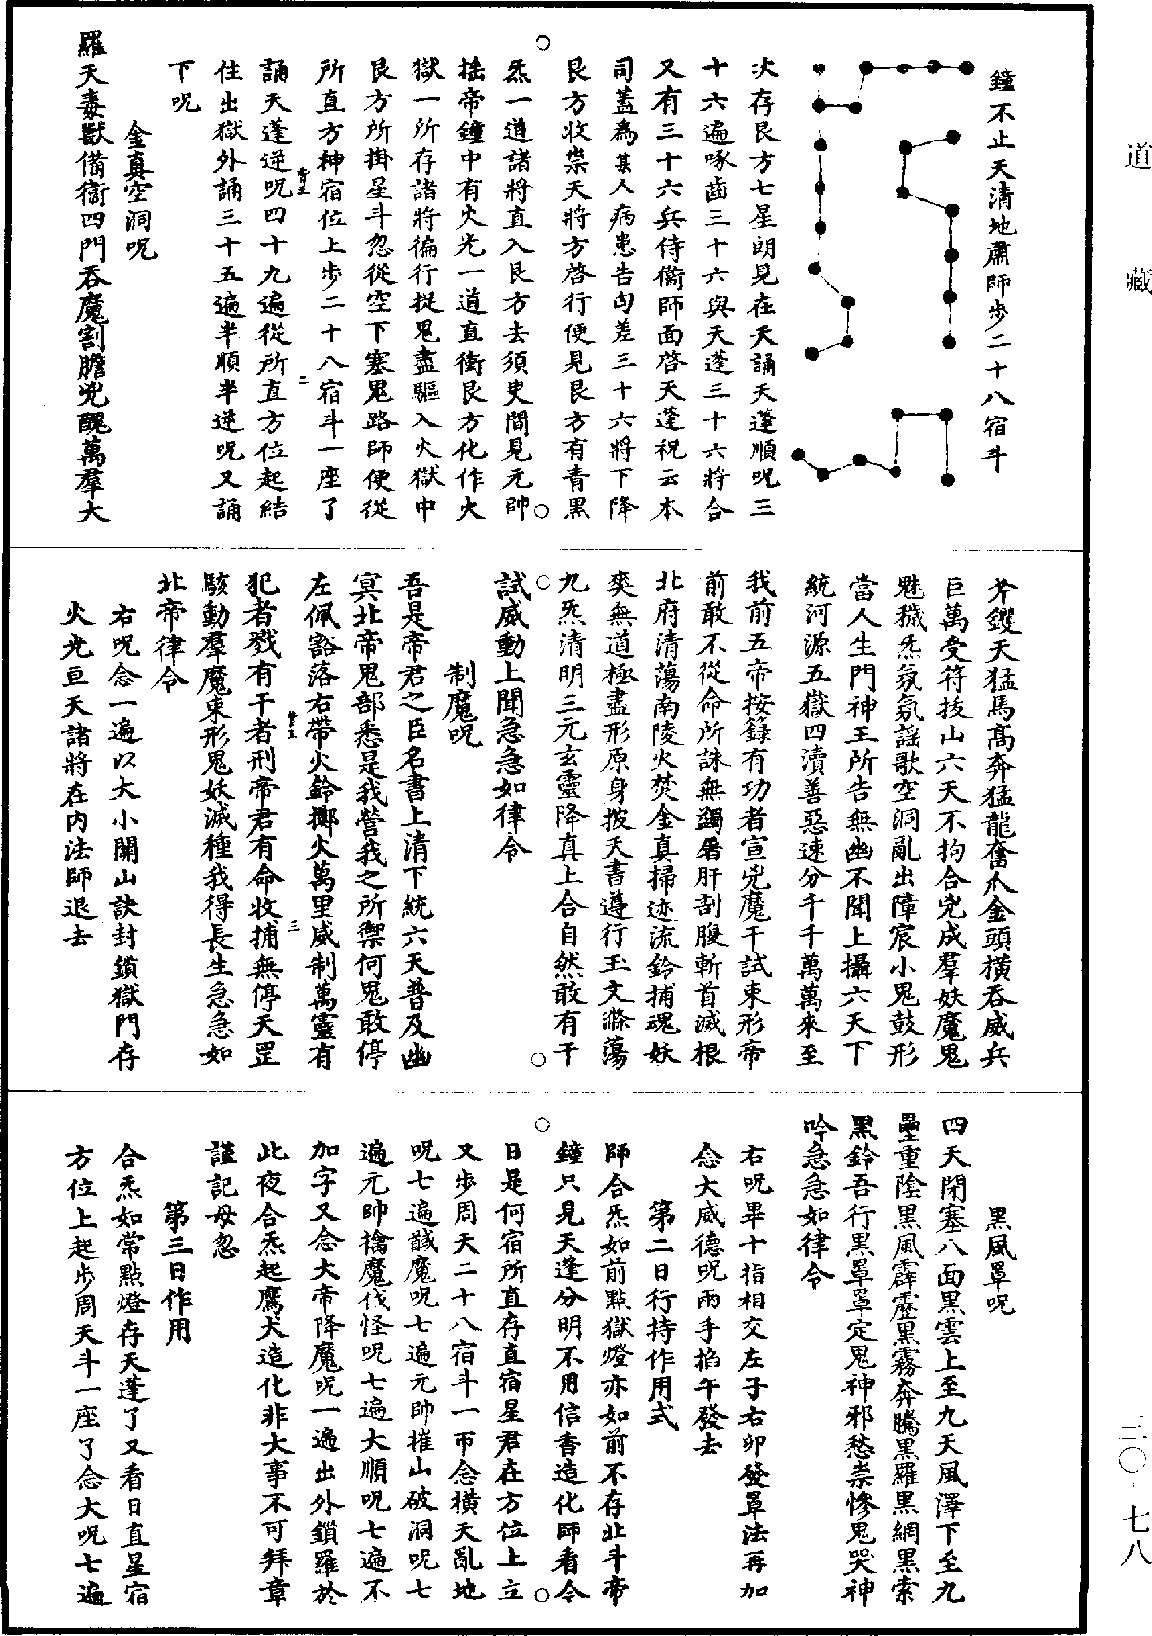 道藏
三〇·七八
鐘不止天清地肅師步二十八宿斗
次存艮方七星朗見在天誦天蓬順呪三
十六遍啄齒三十六與天蓬三十六將合
又有三十六兵侍衛師面啓天蓬祝云本
司蓋為某人病患告白差三十六將下降
艮方收祟天將方啓行便見艮方有青黑
炁一道諸將直入艮方去須臾間見元帥
搖帝鐘中有火光一道直衝艮方化作火
獄一所存諸將徧行捉鬼盡驅入火獄中
艮方所掛星斗忽從空下塞鬼路師便從
所直方神宿位上步二十八宿斗一座了
誦天蓬逆呪四十九遍從所直方位起結
住出獄外誦三十五遍半順半逆呪又誦
下呪
金真空洞呪
羅天毒獸備衛四門吞魔割膽兇醜萬羣大
斧钁天猛馬高奔猛龍奮爪金頭橫吞威兵
巨萬受符拔山六天不拘合兇成羣妖魔鬼
魅穢炁氛氛謠歌空洞亂出障宸小鬼鼓形
當人生門神王所告無幽不聞上攝六天下
統河源五嶽四瀆善惡速分千千萬萬來至
我前五帝按錄有功者宣兇魔干試束形帝
前敢不從命所誅無蠲屠肝刮腹斬首滅根
北府清蕩南陵火焚金真掃迹流鈴捕魂妖
爽無道極盡形原身披天書遵行玉文滌蕩
九炁清明三元玄靈降真上合自然敢有干
試威動上聞急急如律令
制魔呪
吾是帝君之臣名書上清下統六天普及幽
冥北帝鬼部悉是我營我之所禦何鬼敢停
左佩豁落右帶火鈴擲火萬里威制萬靈有
犯者戮有干者刑帝君有命收捕無停天罡
駭動羣魔束形鬼妖滅種我得長生急急如
北帝律令
右呪念一遍以大小開山訣封鎖獄門存
火光亘天諸將在内法師退去
黑風罩呪
四天閉塞八面黑雲上至九天風澤下至九
壘重陰黑風霹靂黑霧奔騰黑羅黑網黑索
黑鈴吾行黑罩罩定鬼神邪愁祟慘鬼哭神
吟急急如律令
右呪畢十指相交左子右卯發罩法再加
念大威德呪兩手掐午發去
第二日行持作用式
師合炁如前點獄燈亦如前不存北斗帝
鐘只見天蓬分明不用信香造化師看今
日是何宿所直存直宿星君在方位上立
又步周天二十八宿斗一帀念橫天亂地
呪七遍馘魔呪七遍元帥摧山破洞呪七
遍元帥擒魔伐怪呪七遍大順呪七遍不
加字又念大帝降魔呪一遍出外鎖羅於
此夜合炁起鷹犬造化非大事不可拜章
謹記毋忽
第三日作用
合炁如常點燈存天蓬了又看日直星宿
方位上起步周天斗一座了念大呪七遍